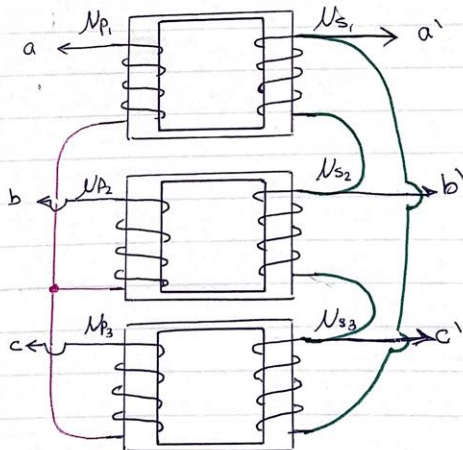 a NP1 NS1 a'
b NP2 NS2 b'
c NP3 NS3 c'